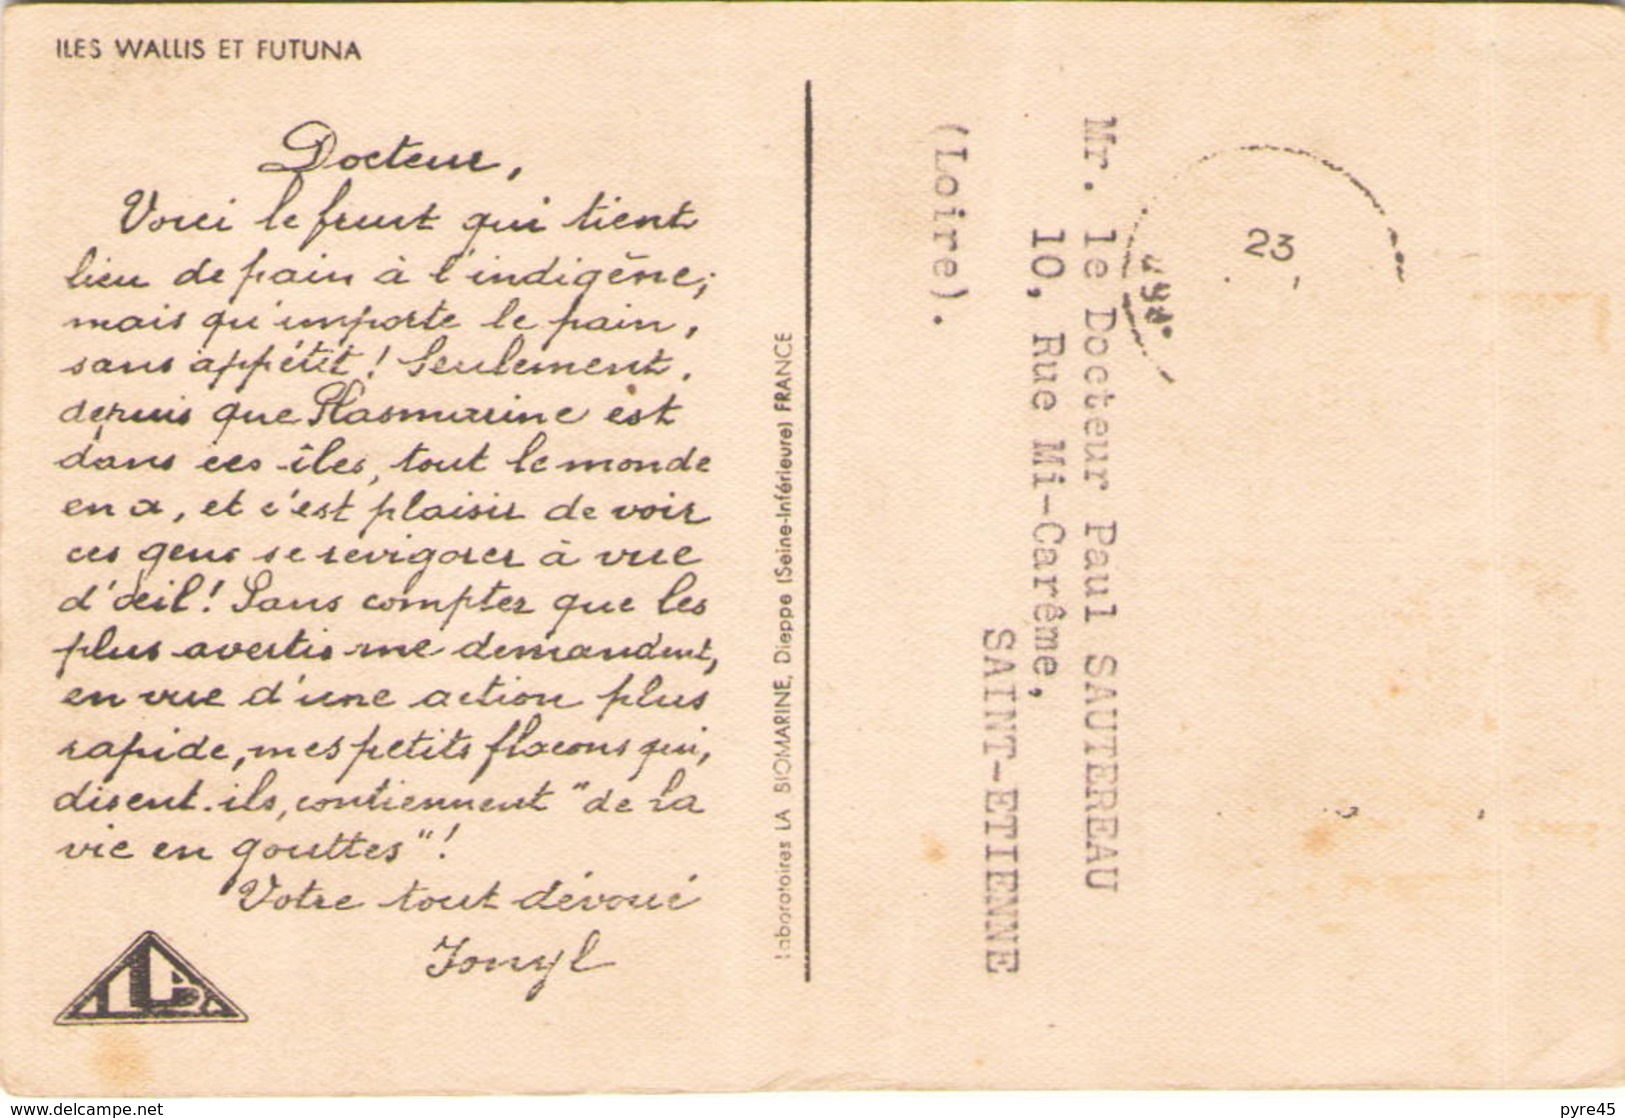 ILES WALLIS ET FUTUNA
Docteur,
Voici le fruit qui tient
lieu de pain à l'indigène;
mais qu'importe le pain,
sans appétit! Seulement,
depuis que Plasmarine est
dans ces îles, tout le monde
en a, et c'est plaisir de voir
ces gens se revigorer à vue
d'œil! Sans compter que les
plus avertis me demandent,
en vue d'une action plus
rapide, mes petits flacons qui,
disent-ils, contiennent "de la
vie en gouttes"!
Votre tout dévoué
Ionyl
Laboratoires LA BIOMARINE, Dieppe (Seine-Inférieure) FRANCE
Mr. le Docteur Paul SAUTEREAU
10, Rue Mi-Carême,
SAINT-ETIENNE
(Loire).
23
www.delcampe.net
pyre45